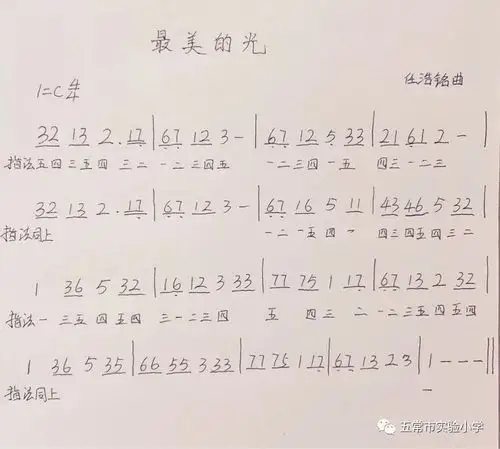 最美的光
1=C 4/4
任浩铭曲
32 13 2. 17 | 67 12 3 - | 67 12 5 33 | 21 61 2 - |
指法五四 三五四 三二 一二三四五 一二三四 一五 四三 一二三
32 13 2. 17 | 67 12 3 - | 67 16 5 11 | 43 46 5 32 |
指法同上 一二一五四一 四三四五四三二
1 36 5 32 | 16 12 3 33 | 77 75 1 17 | 67 13 2 32 |
指法一 三五四五四 三一二三四 五 四三 二 一二三五四五四
1 36 5 35 | 66 55 3 33 | 77 75 1 17 | 67 13 2 3 | 1 - - - ||
指法同上 一
五常市实验小学